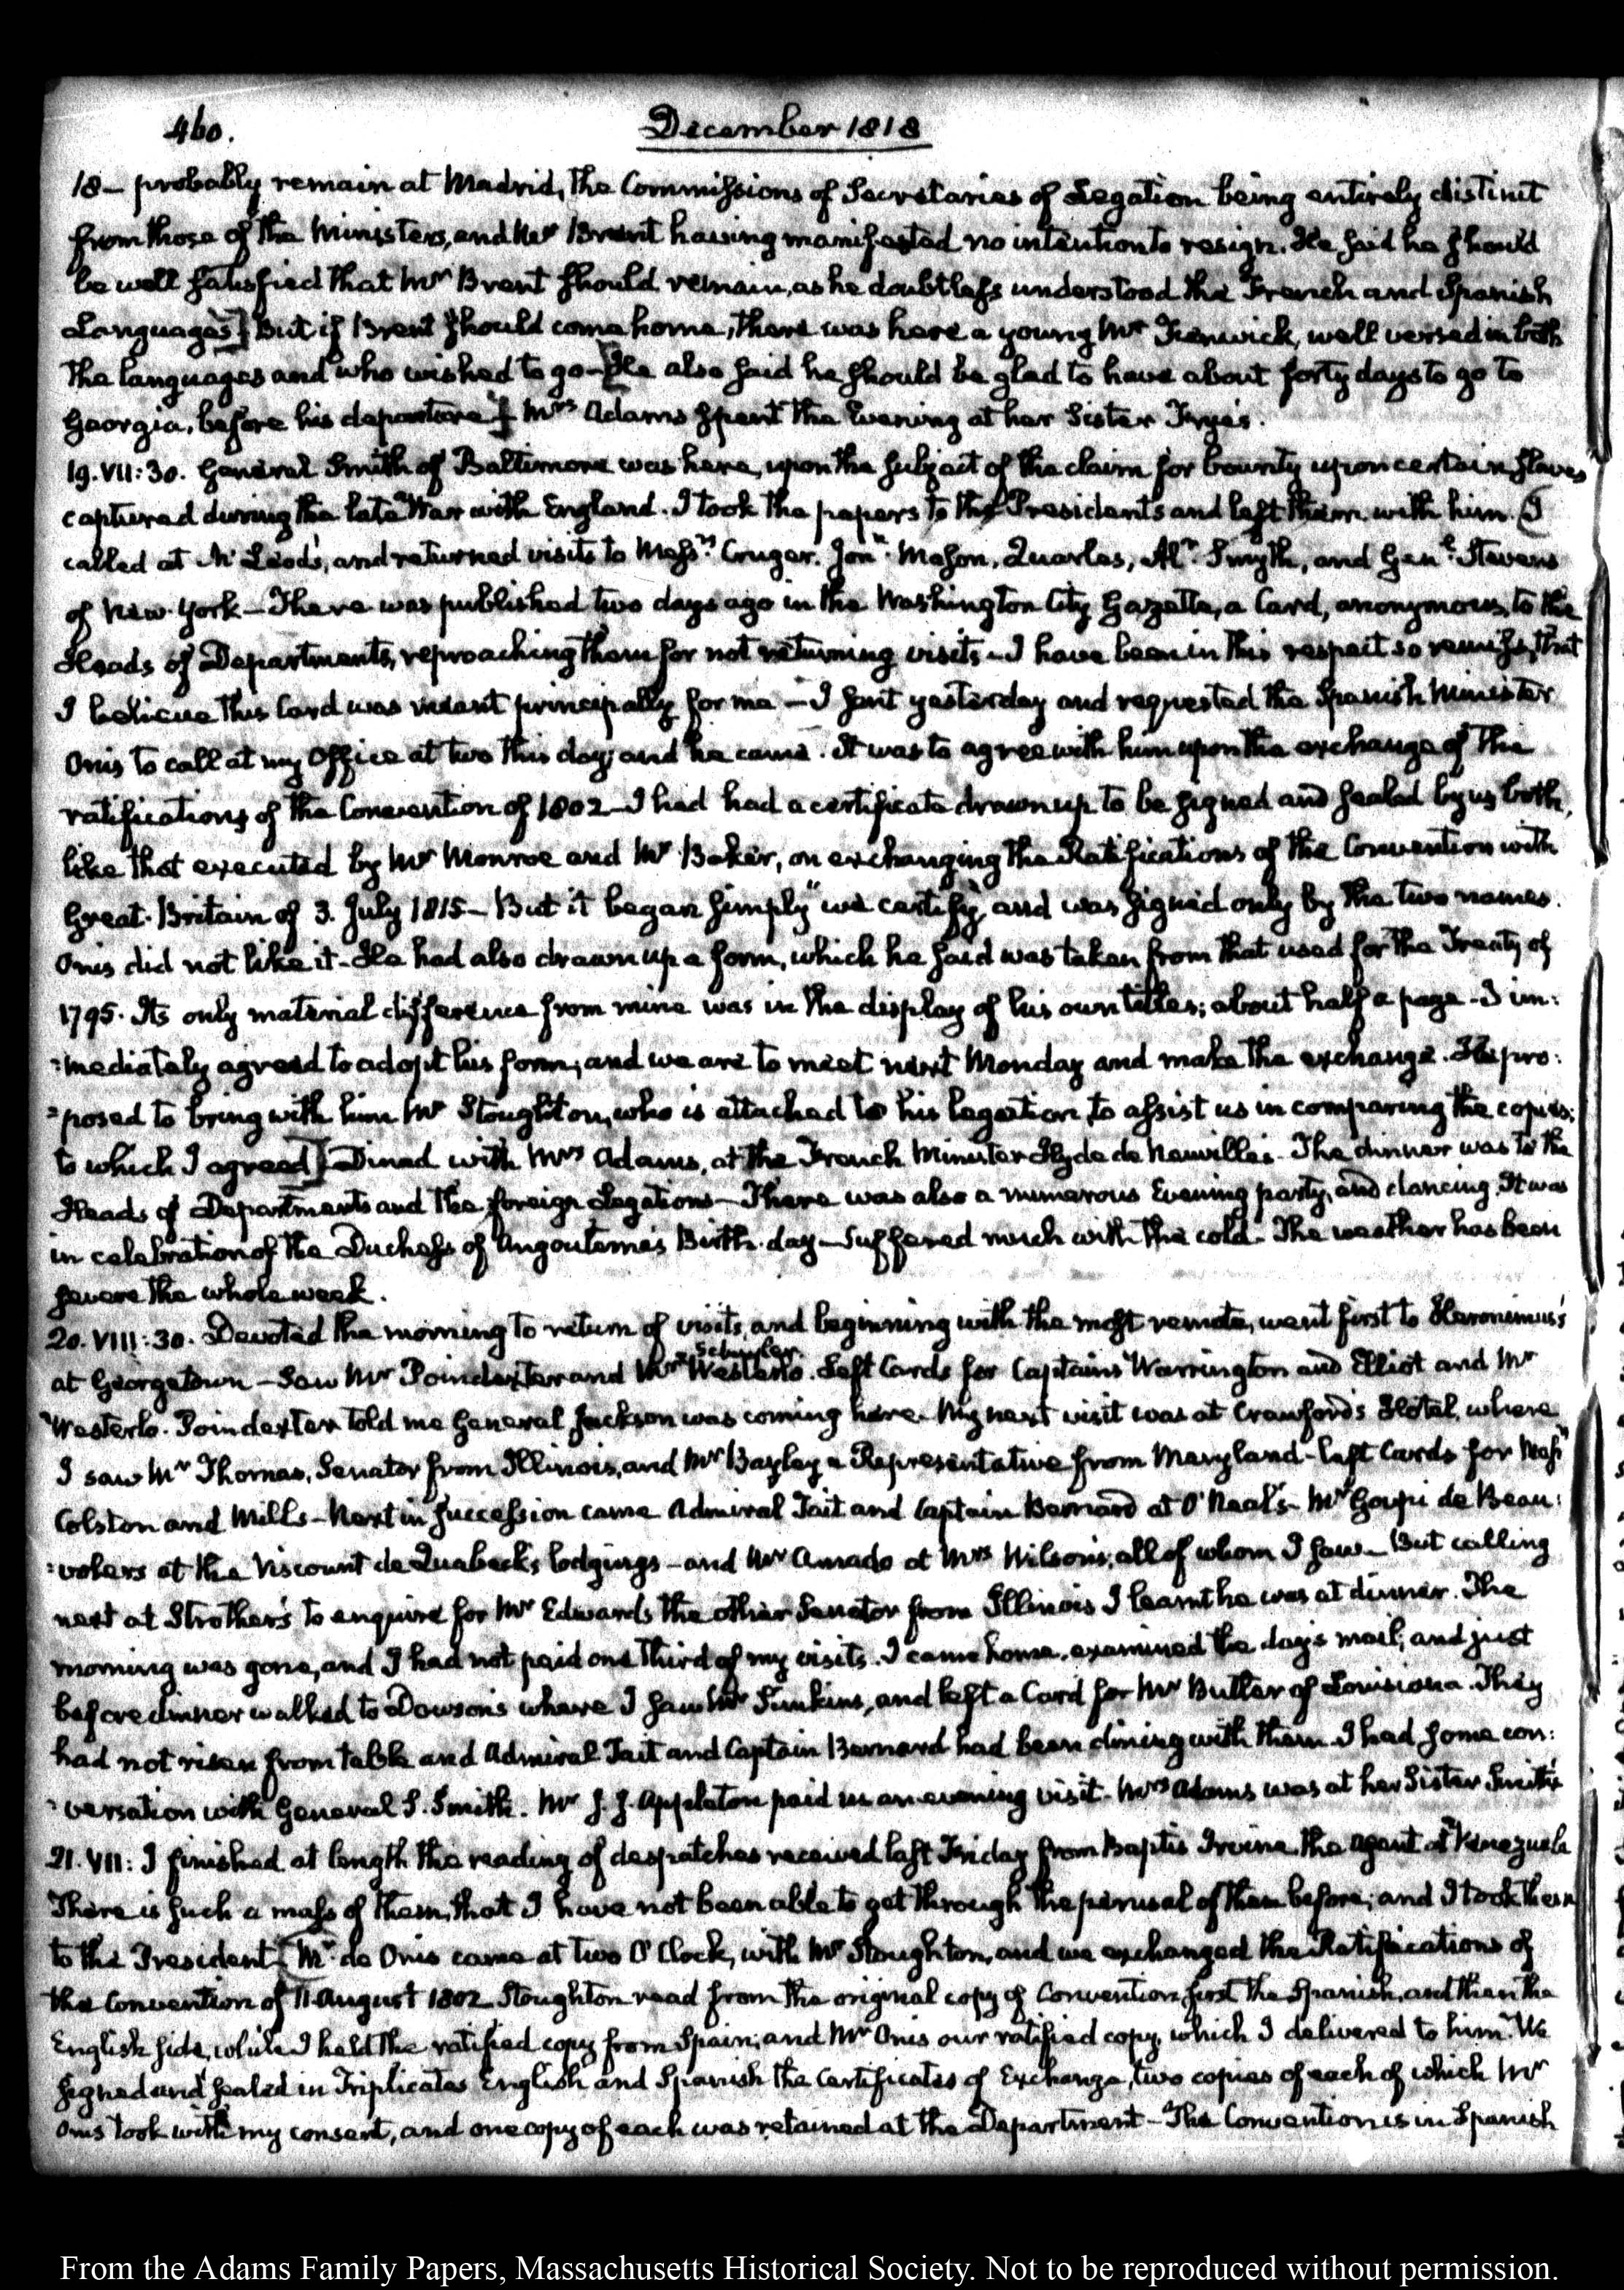 460.
December 1818
18 – probably remain at Madrid, the Commissions of Secretaries of Legation being entirely distinct
from those of the Ministers, and Mr Brent having manifested no intention to resign. He said he should
be well satisfied that Mr Brent should remain, as he doubtless understood the French and Spanish
Languages] But if Brent should come home, there was here a young Mr Fenwick, well versed in both
the languages and who wished to go – [He also said he should be glad to have about forty days to go to
Georgia, before his departure] Mrs Adams spent the Evening at her Sister Frye's.
19. VII:30. General Smith of Baltimore was here, upon the subject of the claim for bounty upon certain slaves
captured during the late War with England. I took the papers to the Presidents and left them with him. [I
called at McLeod's, and returned visits to Messrs Cruger. Jonn Mason, Quarles, Alr Smyth, and Genl Stevens
of New-York – There was published two days ago in the Washington City Gazette, a Card, anonymous, to the
Heads of Departments, reproaching them for not returning visits – I have been in this respect so remiss, that
I believe this Card was meant principally for me – I sent yesterday and requested the Spanish Minister
Onis to call at my Office at two this day; and he came. It was to agree with him upon the exchange of the
ratifications of the Convention of 1802 – I had had a certificate drawn up to be signed and sealed by us both,
like that executed by Mr Monroe and Mr Baker, on exchanging the Ratifications of the Convention with
Great-Britain of 3. July 1815 – But it began simply "we certify" and was signed only by the two names.
Onis did not like it – He had also drawn up a form, which he said was taken from that used for the Treaty of
1795. Its only material difference from mine was in the display of his own titles; about half a page – I im:
:mediately agreed to adopt his form; and we are to meet next Monday and make the exchange. He pro:
:posed to bring with him Mr Stoughton, who is attached to his legation, to assist us in comparing the copies;
to which I agreed] Dined with Mrs Adams, at the French Minister Hyde de Neuville's – The dinner was to the
Heads of Departments and the foreign Legations – There was also a numerous Evening party, and dancing. It was
in celebration of the Duchess of Angouleme's Birth-day – Suffered much with the cold – The weather has been
severe the whole week.
20. VIII:30. Devoted the morning to return of visits, and beginning with the most remote, went first to Heronimus's
at Georgetown – Saw Mr Poindexter and Mr Schuyler. Westerlo. Left Cards for Captains Warrington and Elliot and Mr
Westerlo. Poindexter told me General Jackson was coming here. My next visit was at Crawford's Hotel, where
I saw Mr Thomas, Senator from Illinois, and Mr Bayley a Representative from Maryland – left Cards for Messrs
Colston and Mills – Next in succession came Admiral Tait and Captain Bernard at O'Neal's – Mr Goupi de Beau:
:volers at the Viscount de Quabeck's lodgings – and Mr Amado at Mrs Wilson's; all of whom I saw – But calling
next at Strother's to enquire for Mr Edwards the other Senator from Illinois I learnt he was at dinner. The
morning was gone, and I had not paid one third of my visits. I came home, examined the day's mail; and just
before dinner walked to Dowson's where I saw Mr Simkins, and left a Card for Mr Butler of Louisiana. They
had not risen from table and Admiral Tait and Captain Bernard had been dining with them. I had some con:
:versation with General S. Smith. Mr J. J. Appleton paid us an evening visit. Mrs Adams was at her Sister Smith's
21. VII: I finished at length the reading of despatches received last Friday from Baptis Irvine the Agent at Venezuela
There is such a mass of them, that I have not been able to get through the perusal of them before; and I took them
to the President [Mr de Onis came at two O'Clock, with Mr Stoughton, and we exchanged the Ratifications of
the Convention of 11. August 1802 Stoughton read from the original copy of Convention, first the Spanish, and then the
English side, while I held the ratified copy from Spain; and Mr Onis our ratified copy, which I delivered to him. We
signed and sealed in Triplicates English and Spanish the Certificates of Exchange, two copies of each of which Mr
Onis took with my consent, and one copy of each was retained at the Department – The Convention is in Spanish
From the Adams Family Papers, Massachusetts Historical Society. Not to be reproduced without permission.